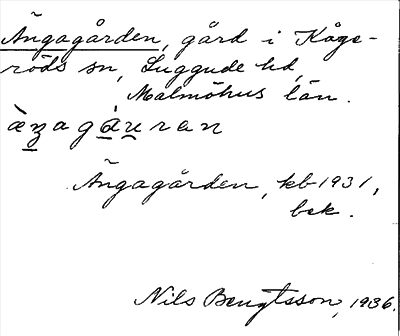 Ängagården, gård i Kåge-
röds sn, Luggude hd,
Malmöhus län.
àn̲agá̲u̲ran
Ängagården, kb 1931,
bek.
Nils Bengtsson, 1936.